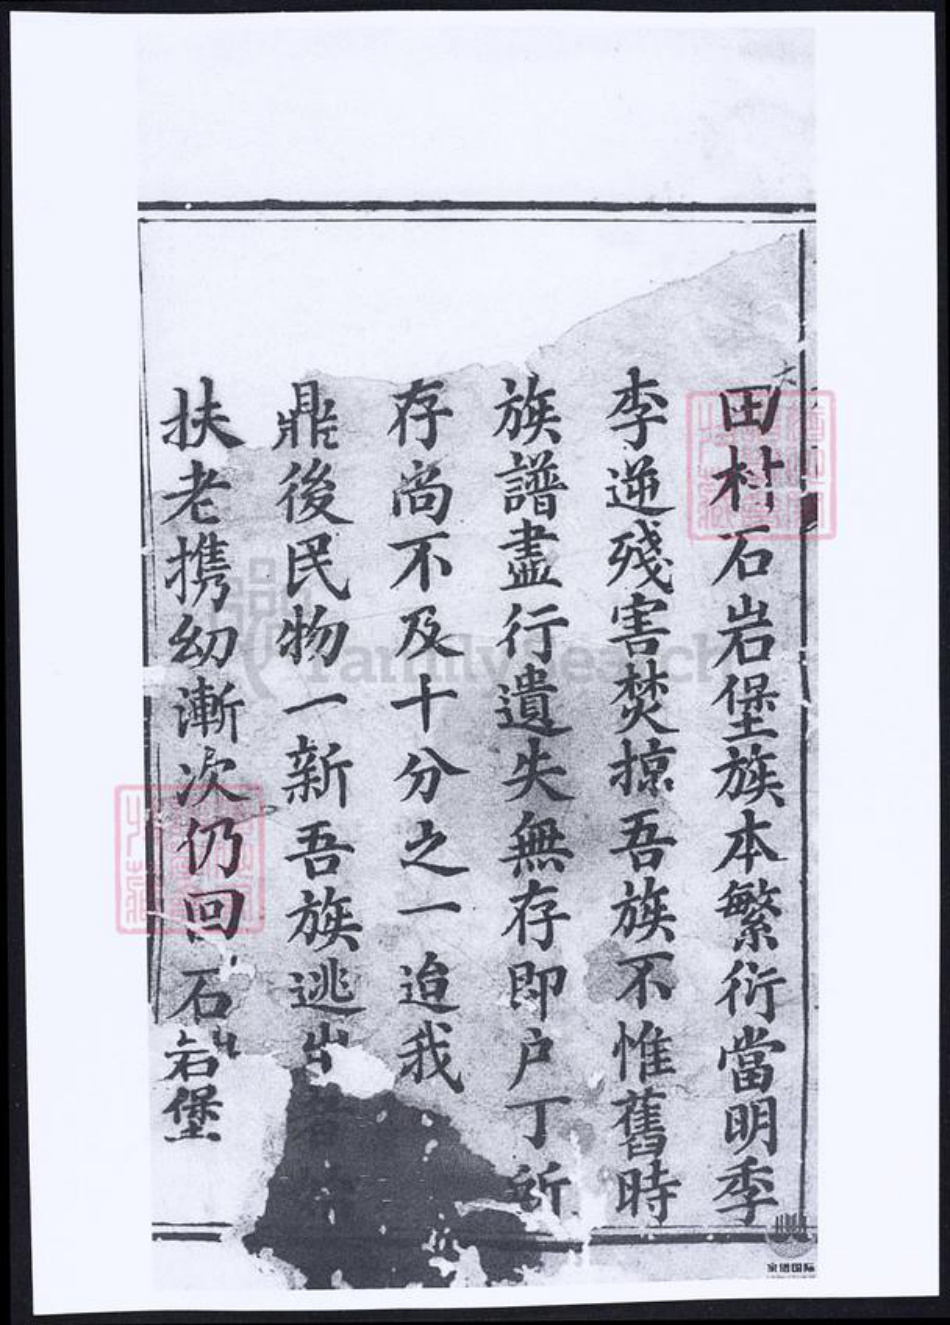 田村石岩堡族本繁衍當明季
李逆殘害焚掠吾族不惟舊時
族譜盡行遺失無存即户丁所
存尚不及十分之一迨我
鼎後民物一新吾族逃出者
扶老携幼漸次仍回石岩堡
FamilySearch
家谱国际